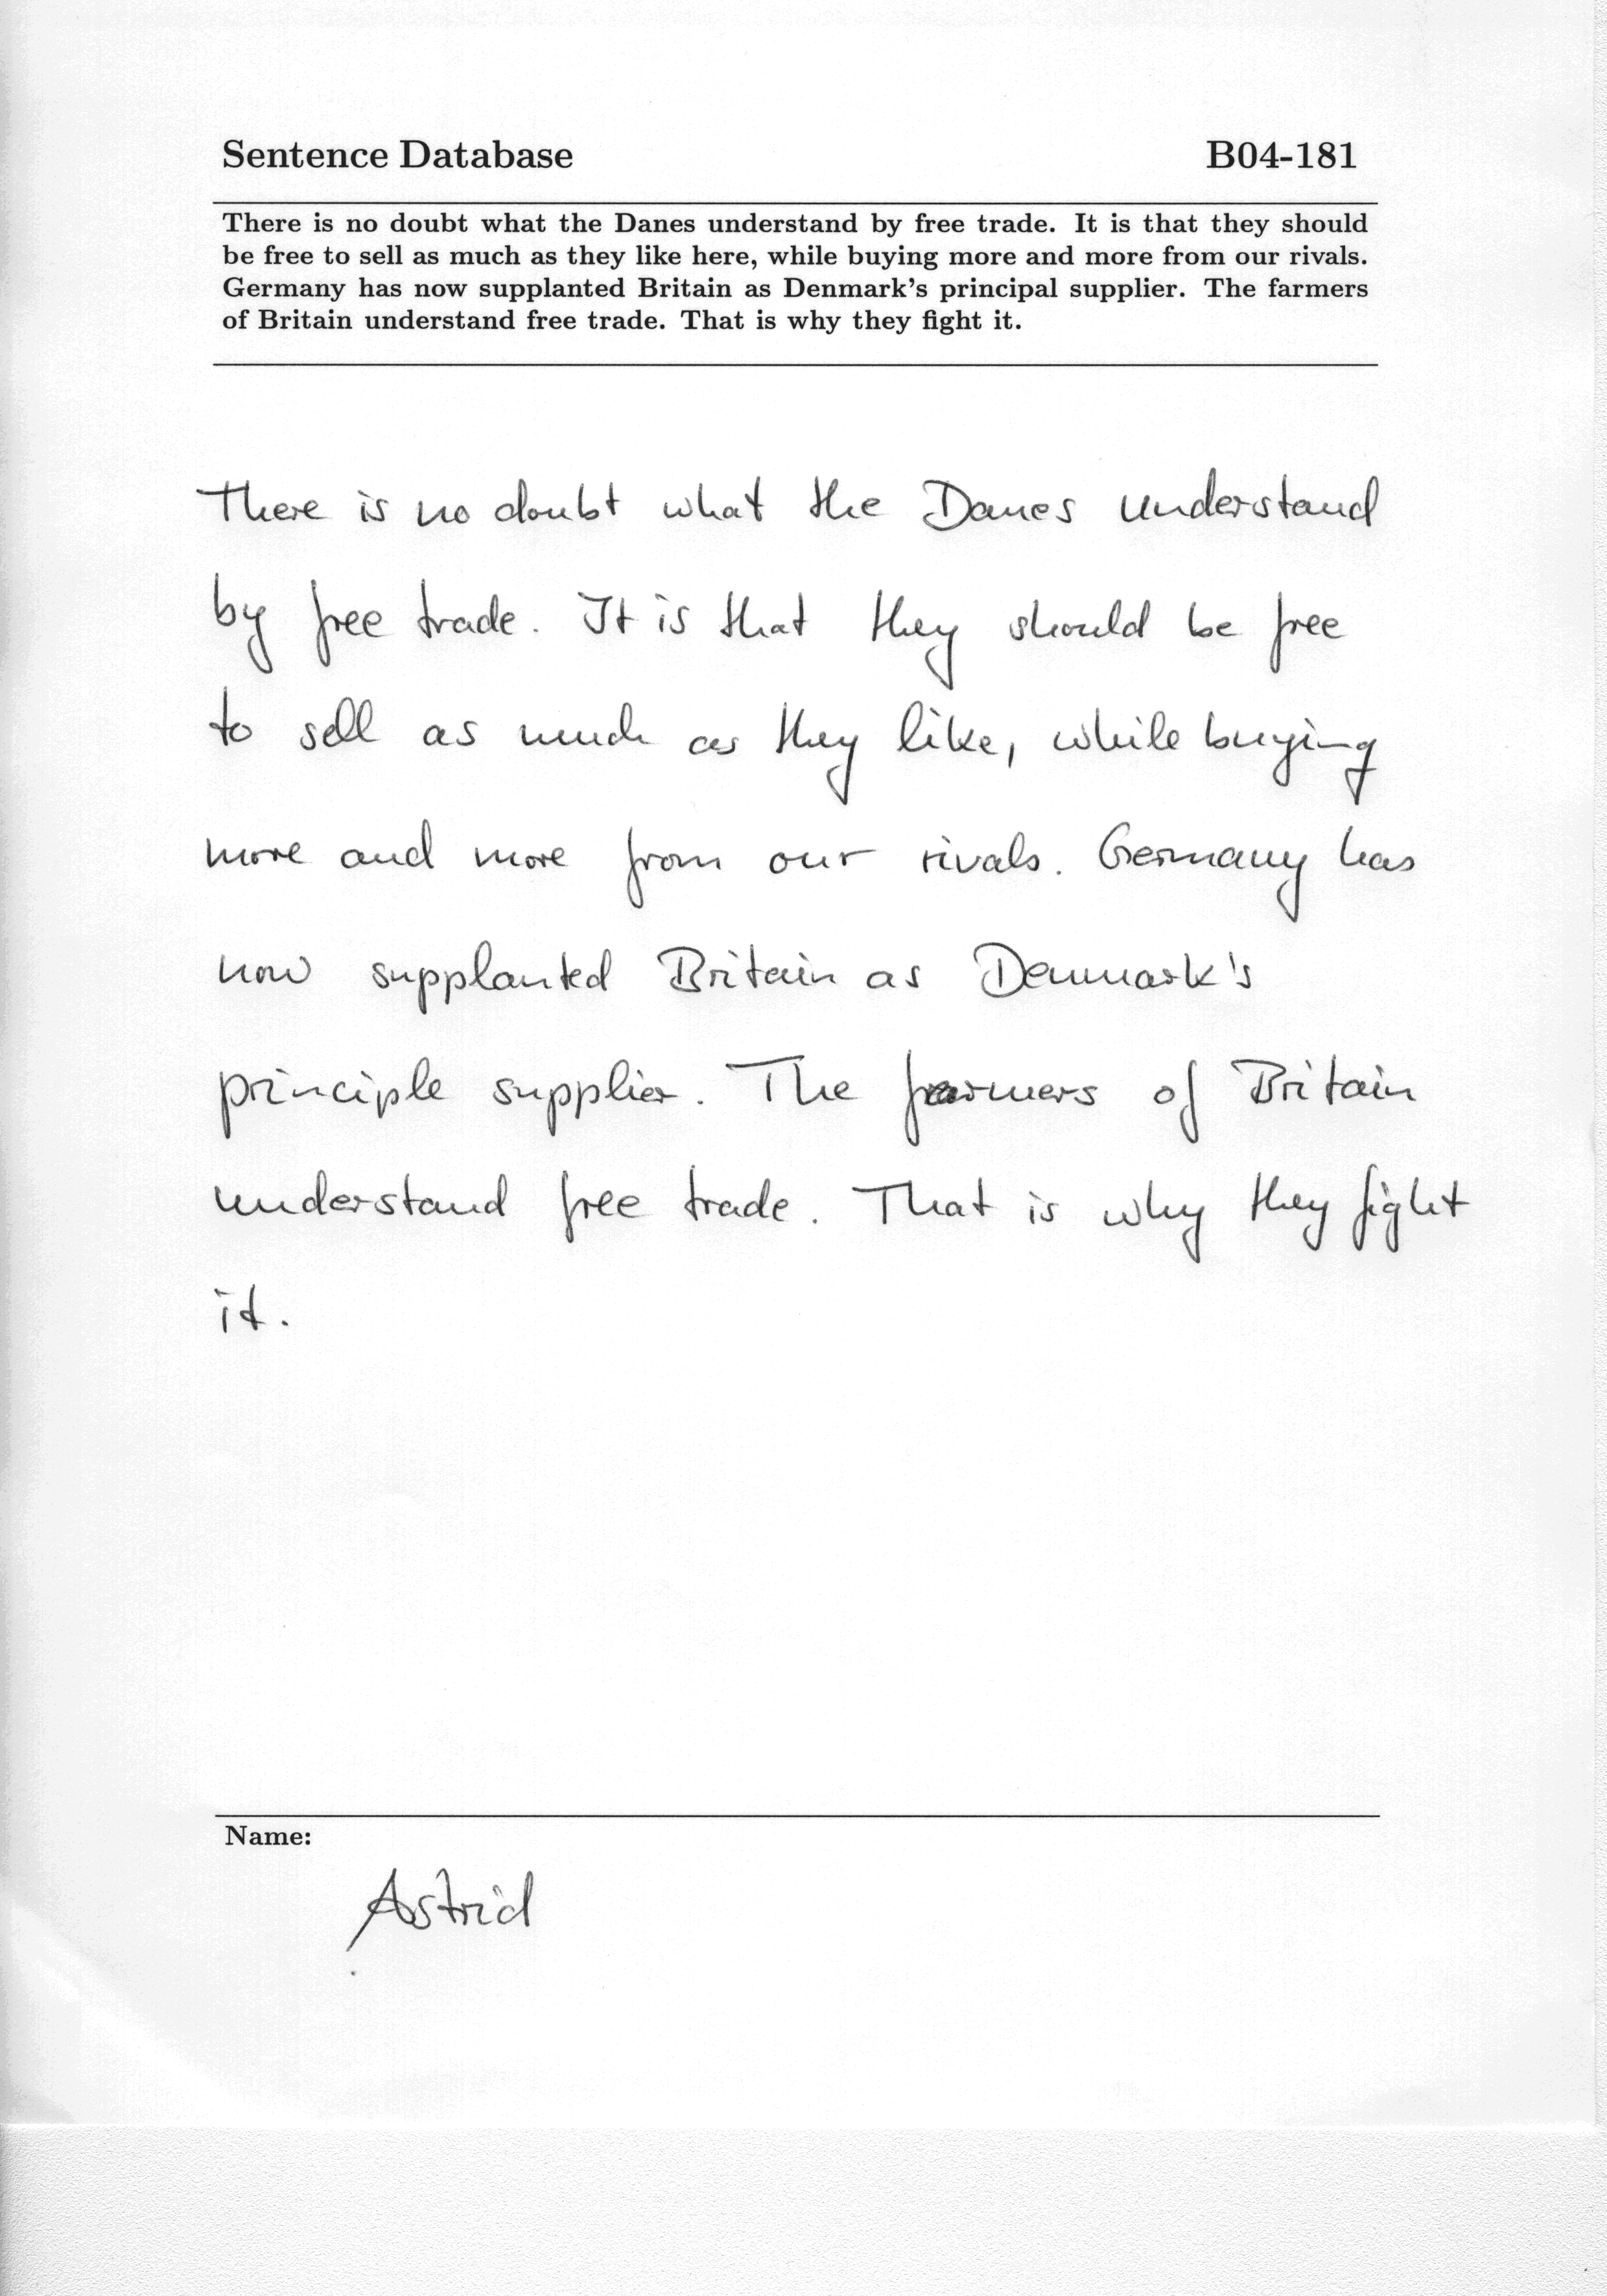 Sentence Database B04-181
There is no doubt what the Danes understand by free trade. It is that they should
be free to sell as much as they like here, while buying more and more from our rivals.
Germany has now supplanted Britain as Denmark's principal supplier. The farmers
of Britain understand free trade. That is why they fight it.
There is no doubt what the Danes understand
by free trade. It is that they should be free
to sell as much as they like, while buying
more and more from our rivals. Germany has
now supplanted Britain as Denmark's
principle supplier. The farmers of Britain
understand free trade. That is why they fight
it.
Name:
Astrid